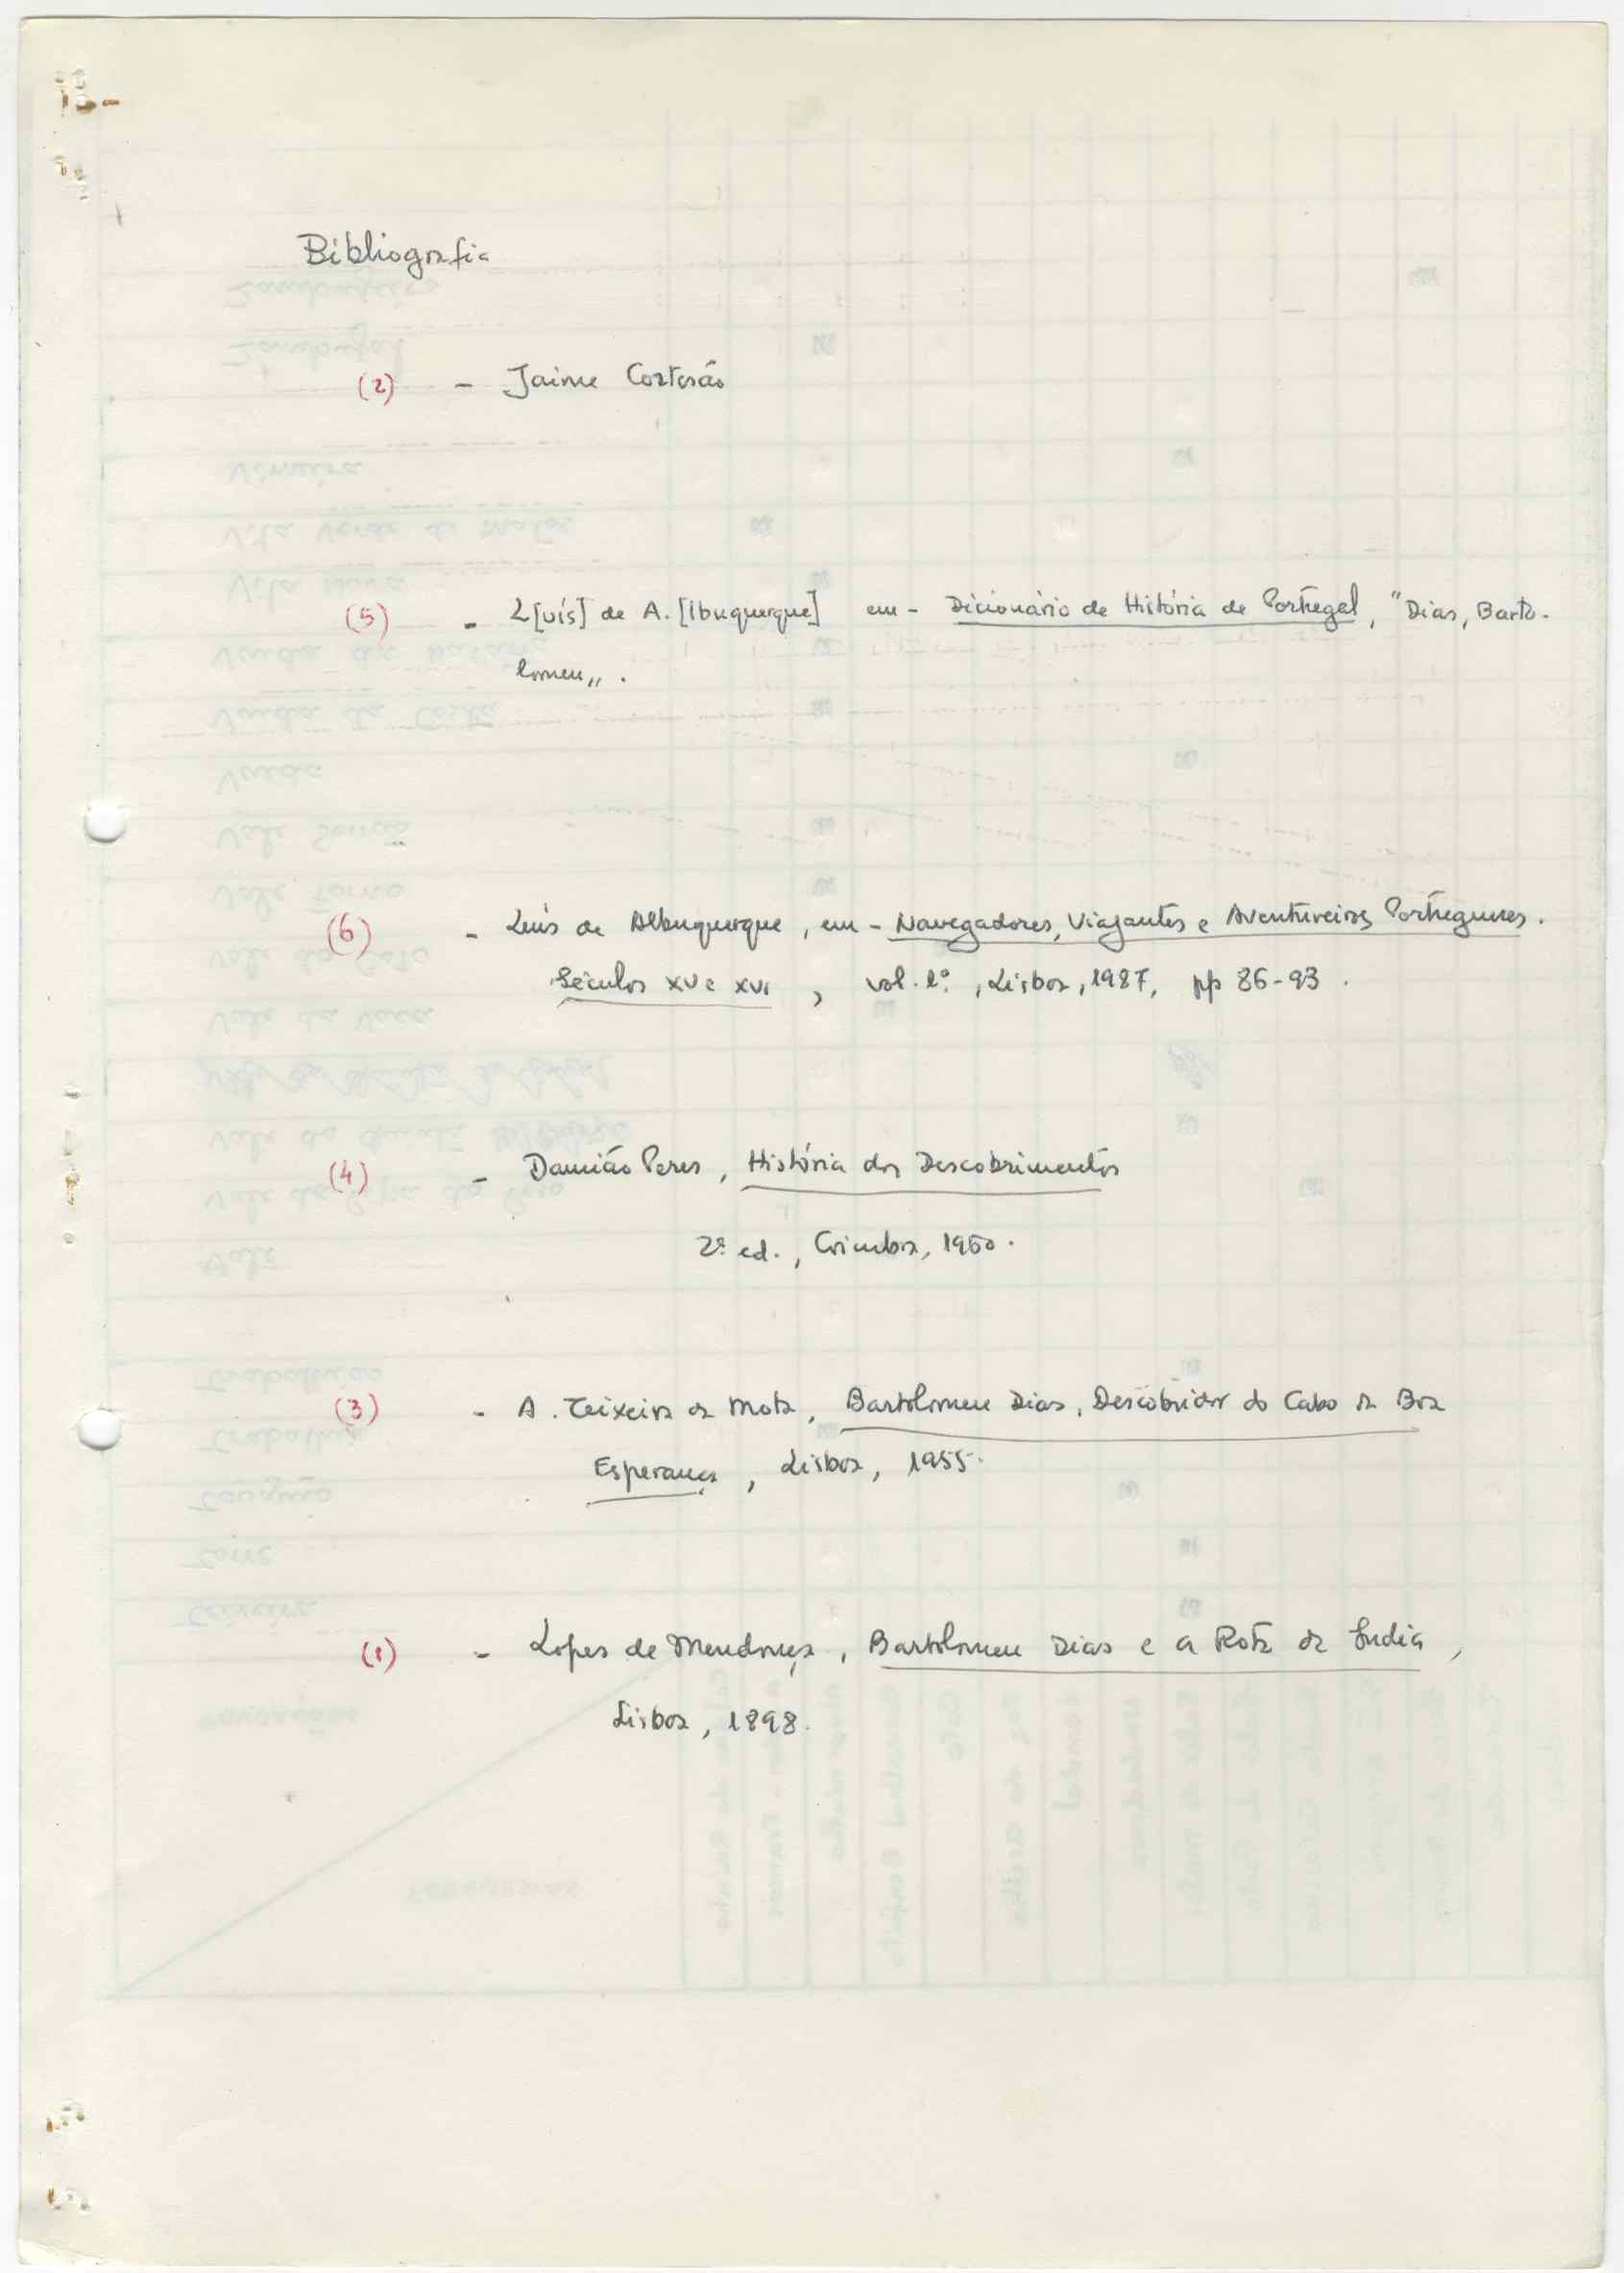 Bibliografia
(2) - Jaime Cortesão
(5) - L[uís] de A. [lbuquerque] em - Dicionário de História de Portugal, "Dias, Barto-
lomeu,, .
(6) - Luís de Albuquerque, em - Navegadores, Viajantes e Aventureiros Portugueses.
Séculos XV e XVI, vol. 1º, Lisboa, 1987, pp 86-93.
(4) - Damião Peres, História dos Descobrimentos
2ª ed., Coimbra, 1960.
(3) - A. Teixeira da Mota, Bartolomeu Dias, Descobridor do Cabo da Boa
Esperança, Lisboa, 1955.
(1) - Lopes de Mendonça, Bartolomeu Dias e a Rota da Índia,
Lisboa, 1898.